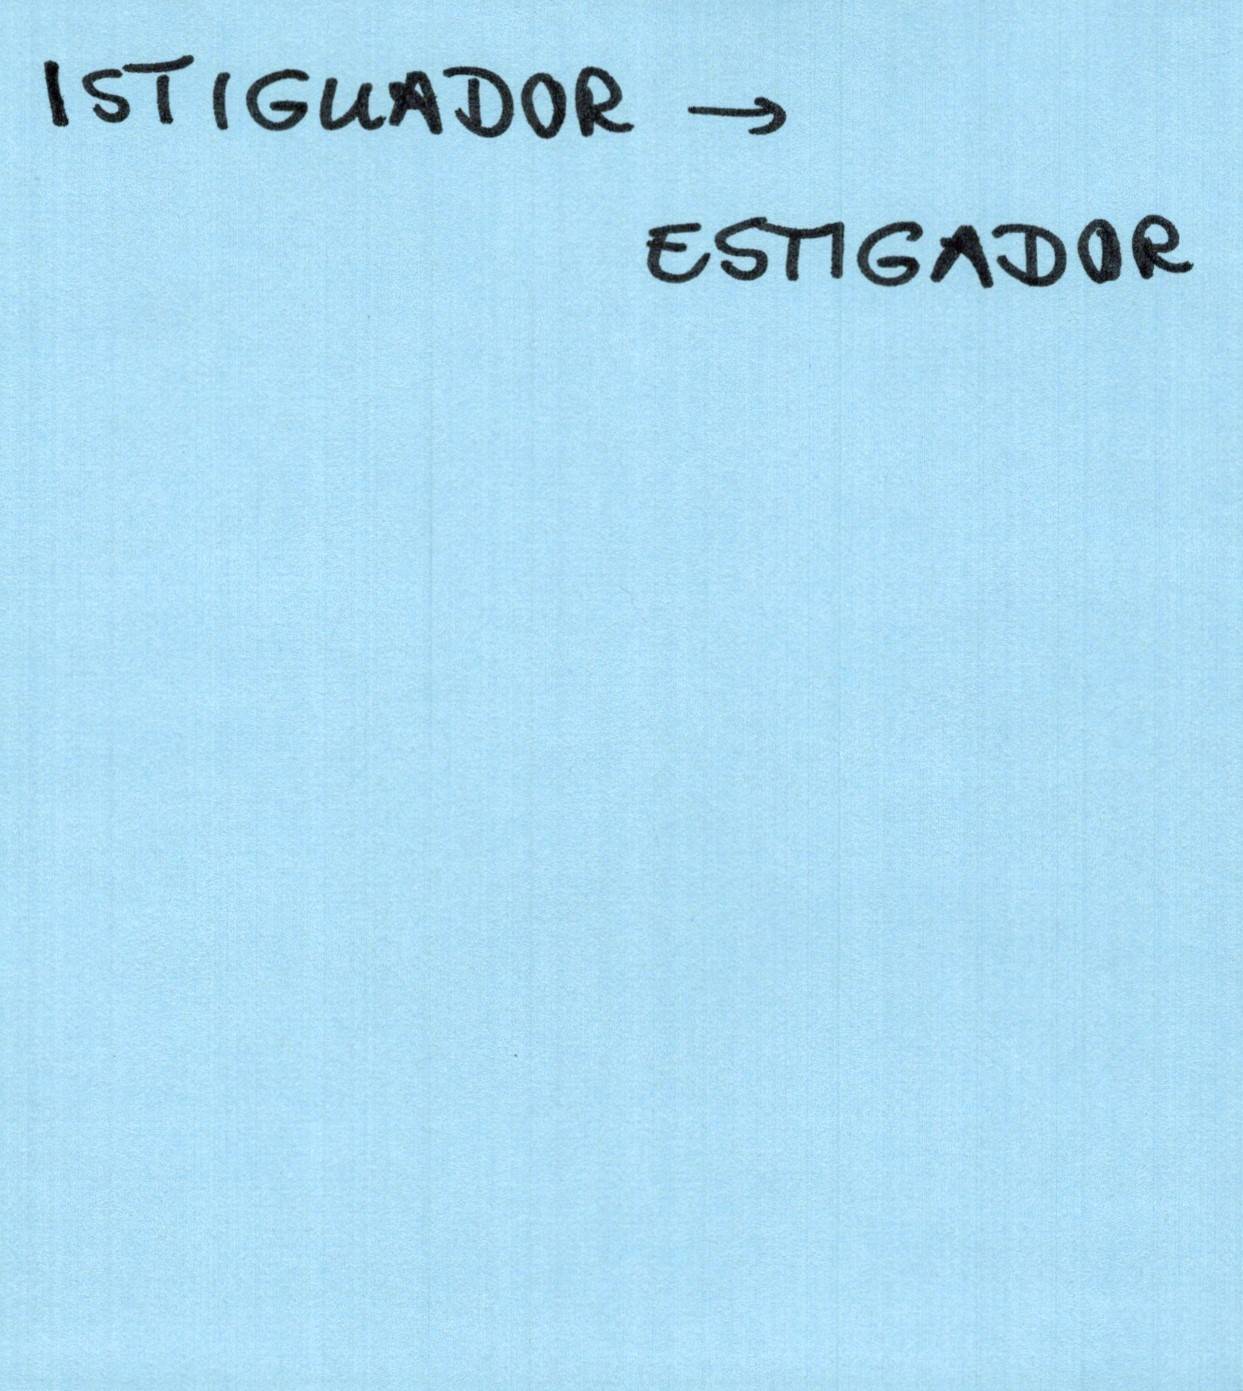 ISTIGUADOR →
ESTIGADOR